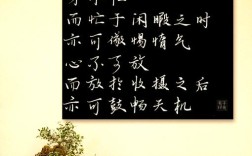 而忙于闲暇之时
亦可儆惕惰气
心不可放
而放於收摄之后
亦可鼓畅天机